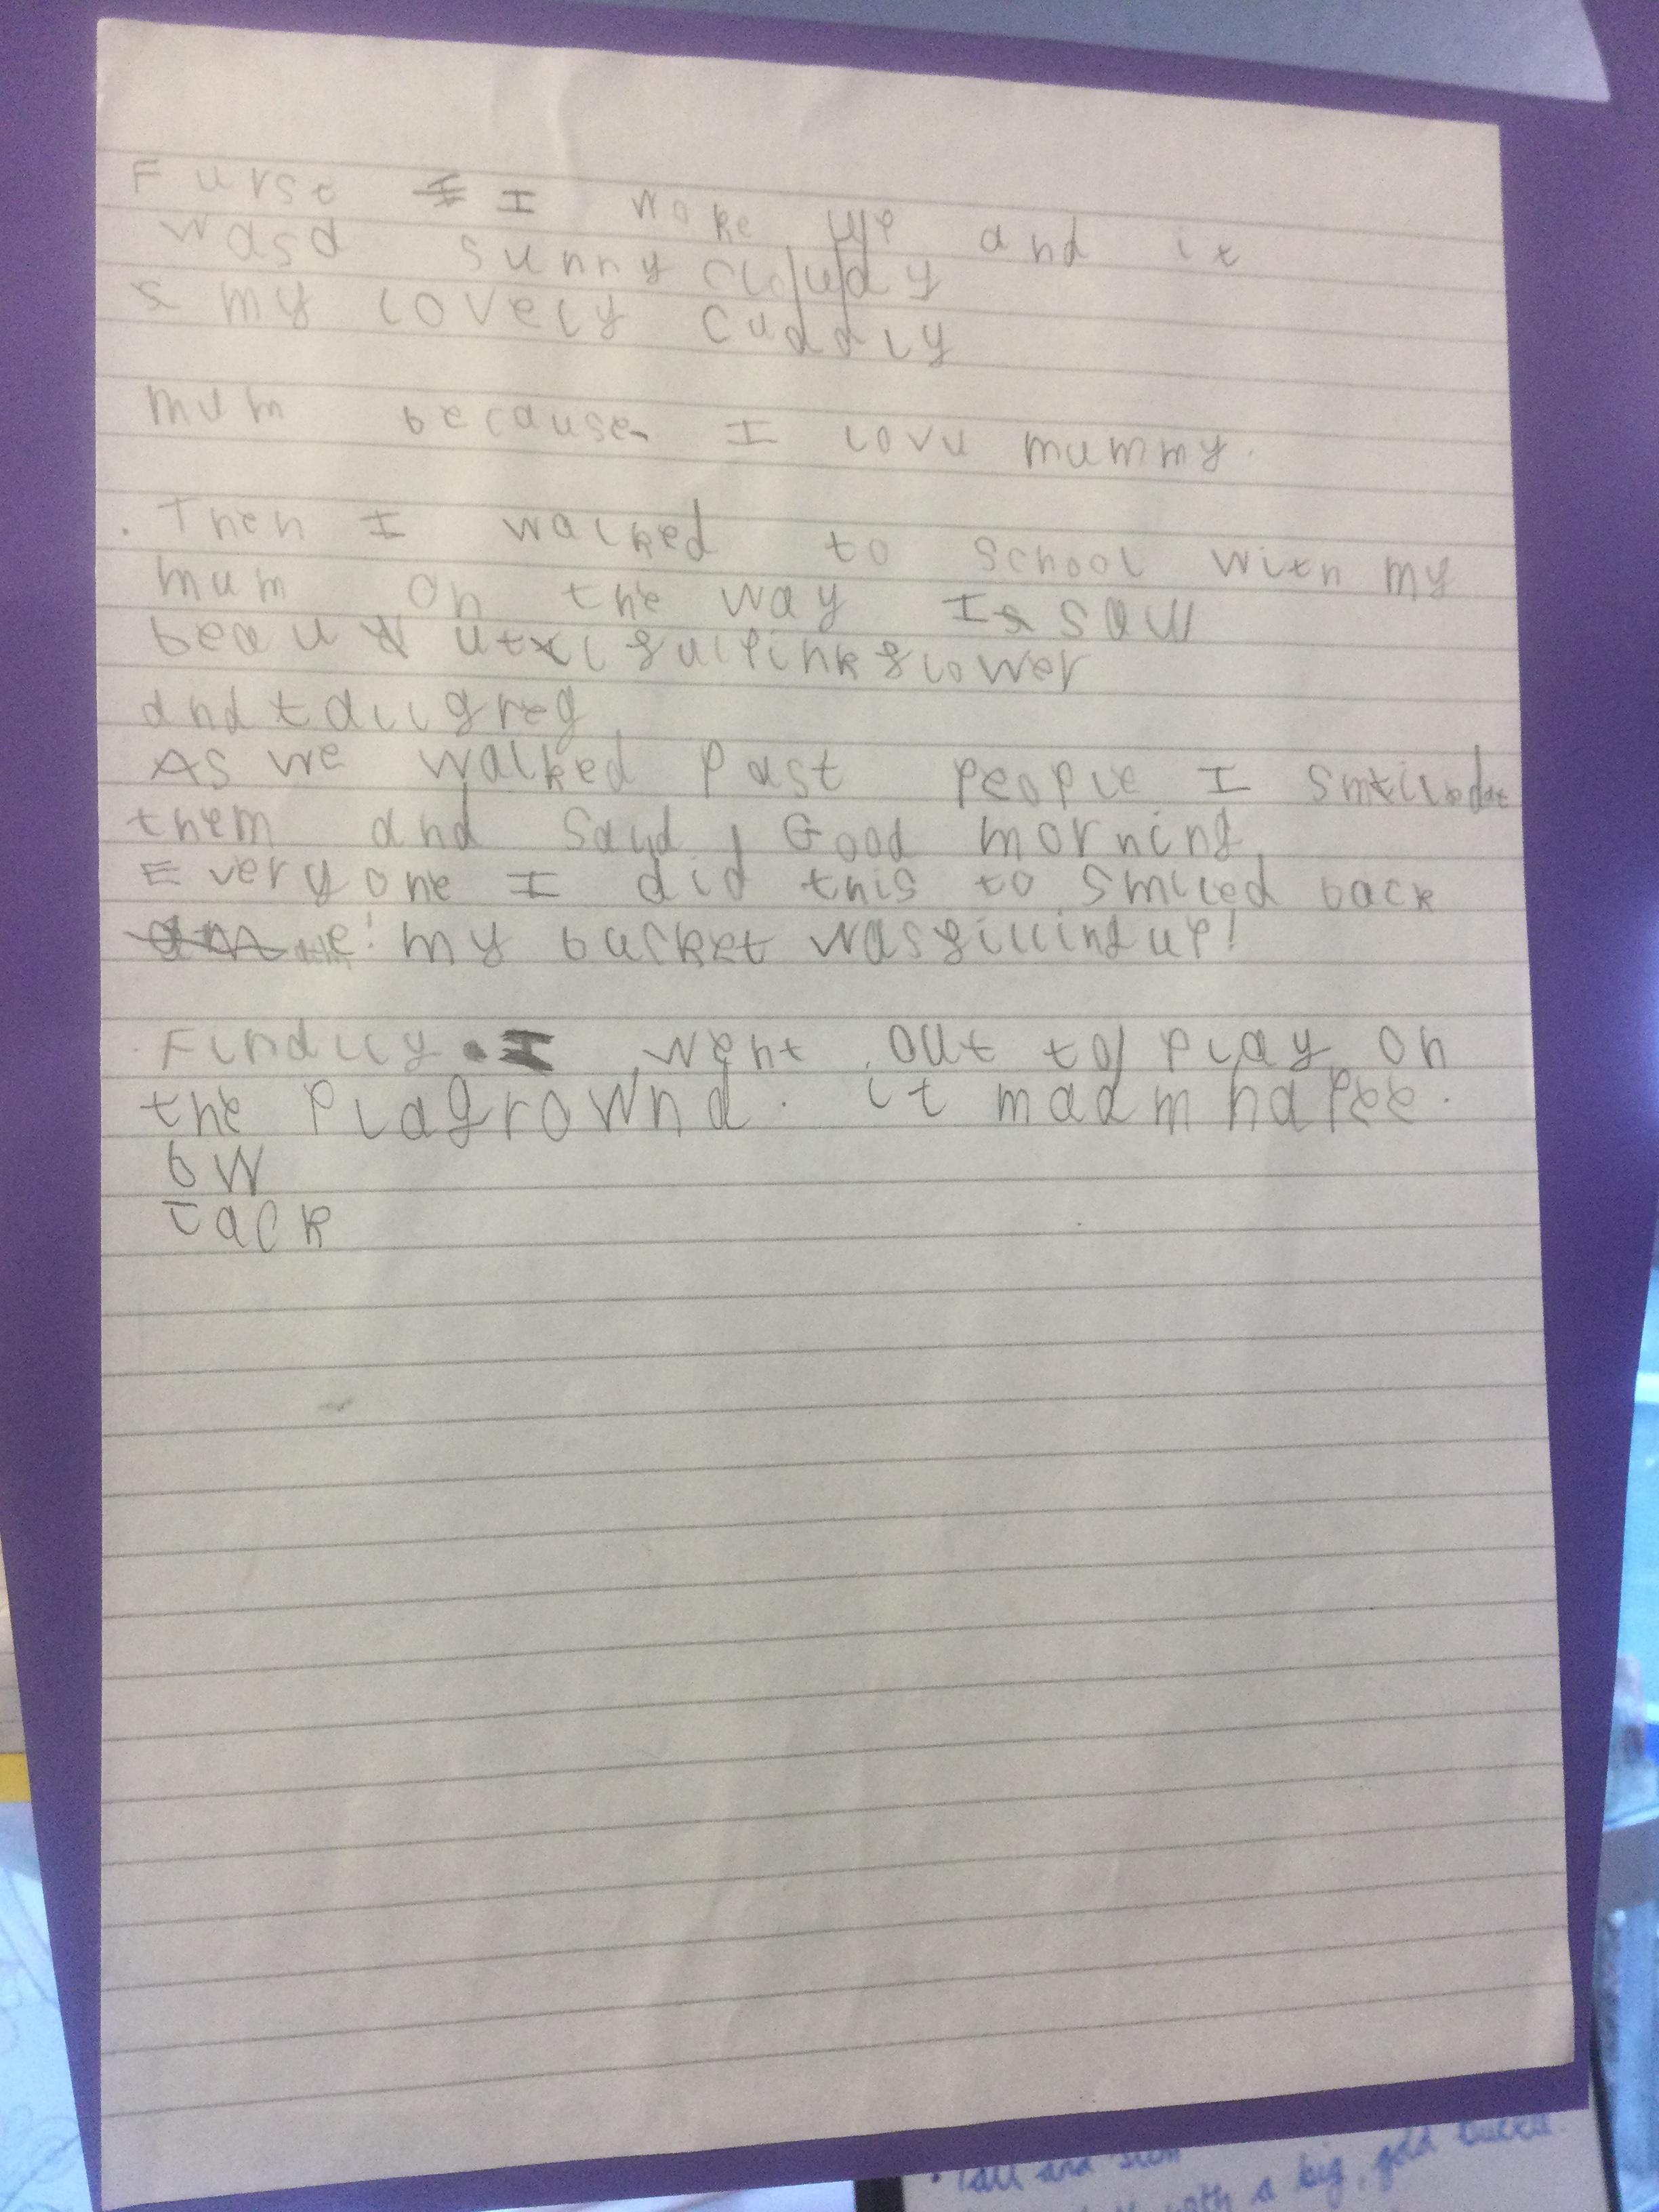 Furst I woke up and it
wasa sunny cloudy
s my lovely cuddly
mum because I lovu mummy.
. Then I walked to school with my
mum on the way I saw
beautifulpinkflower
andtallgreg
As we walked past people I smiledat
them and said, Good morning,
Everyone I did this to smiled back
! my bucket wasfillingup!
Finally I went out to play on
the plagrownd. it mad m hapee.
bW
Jack
• Tall and
with a big, gold